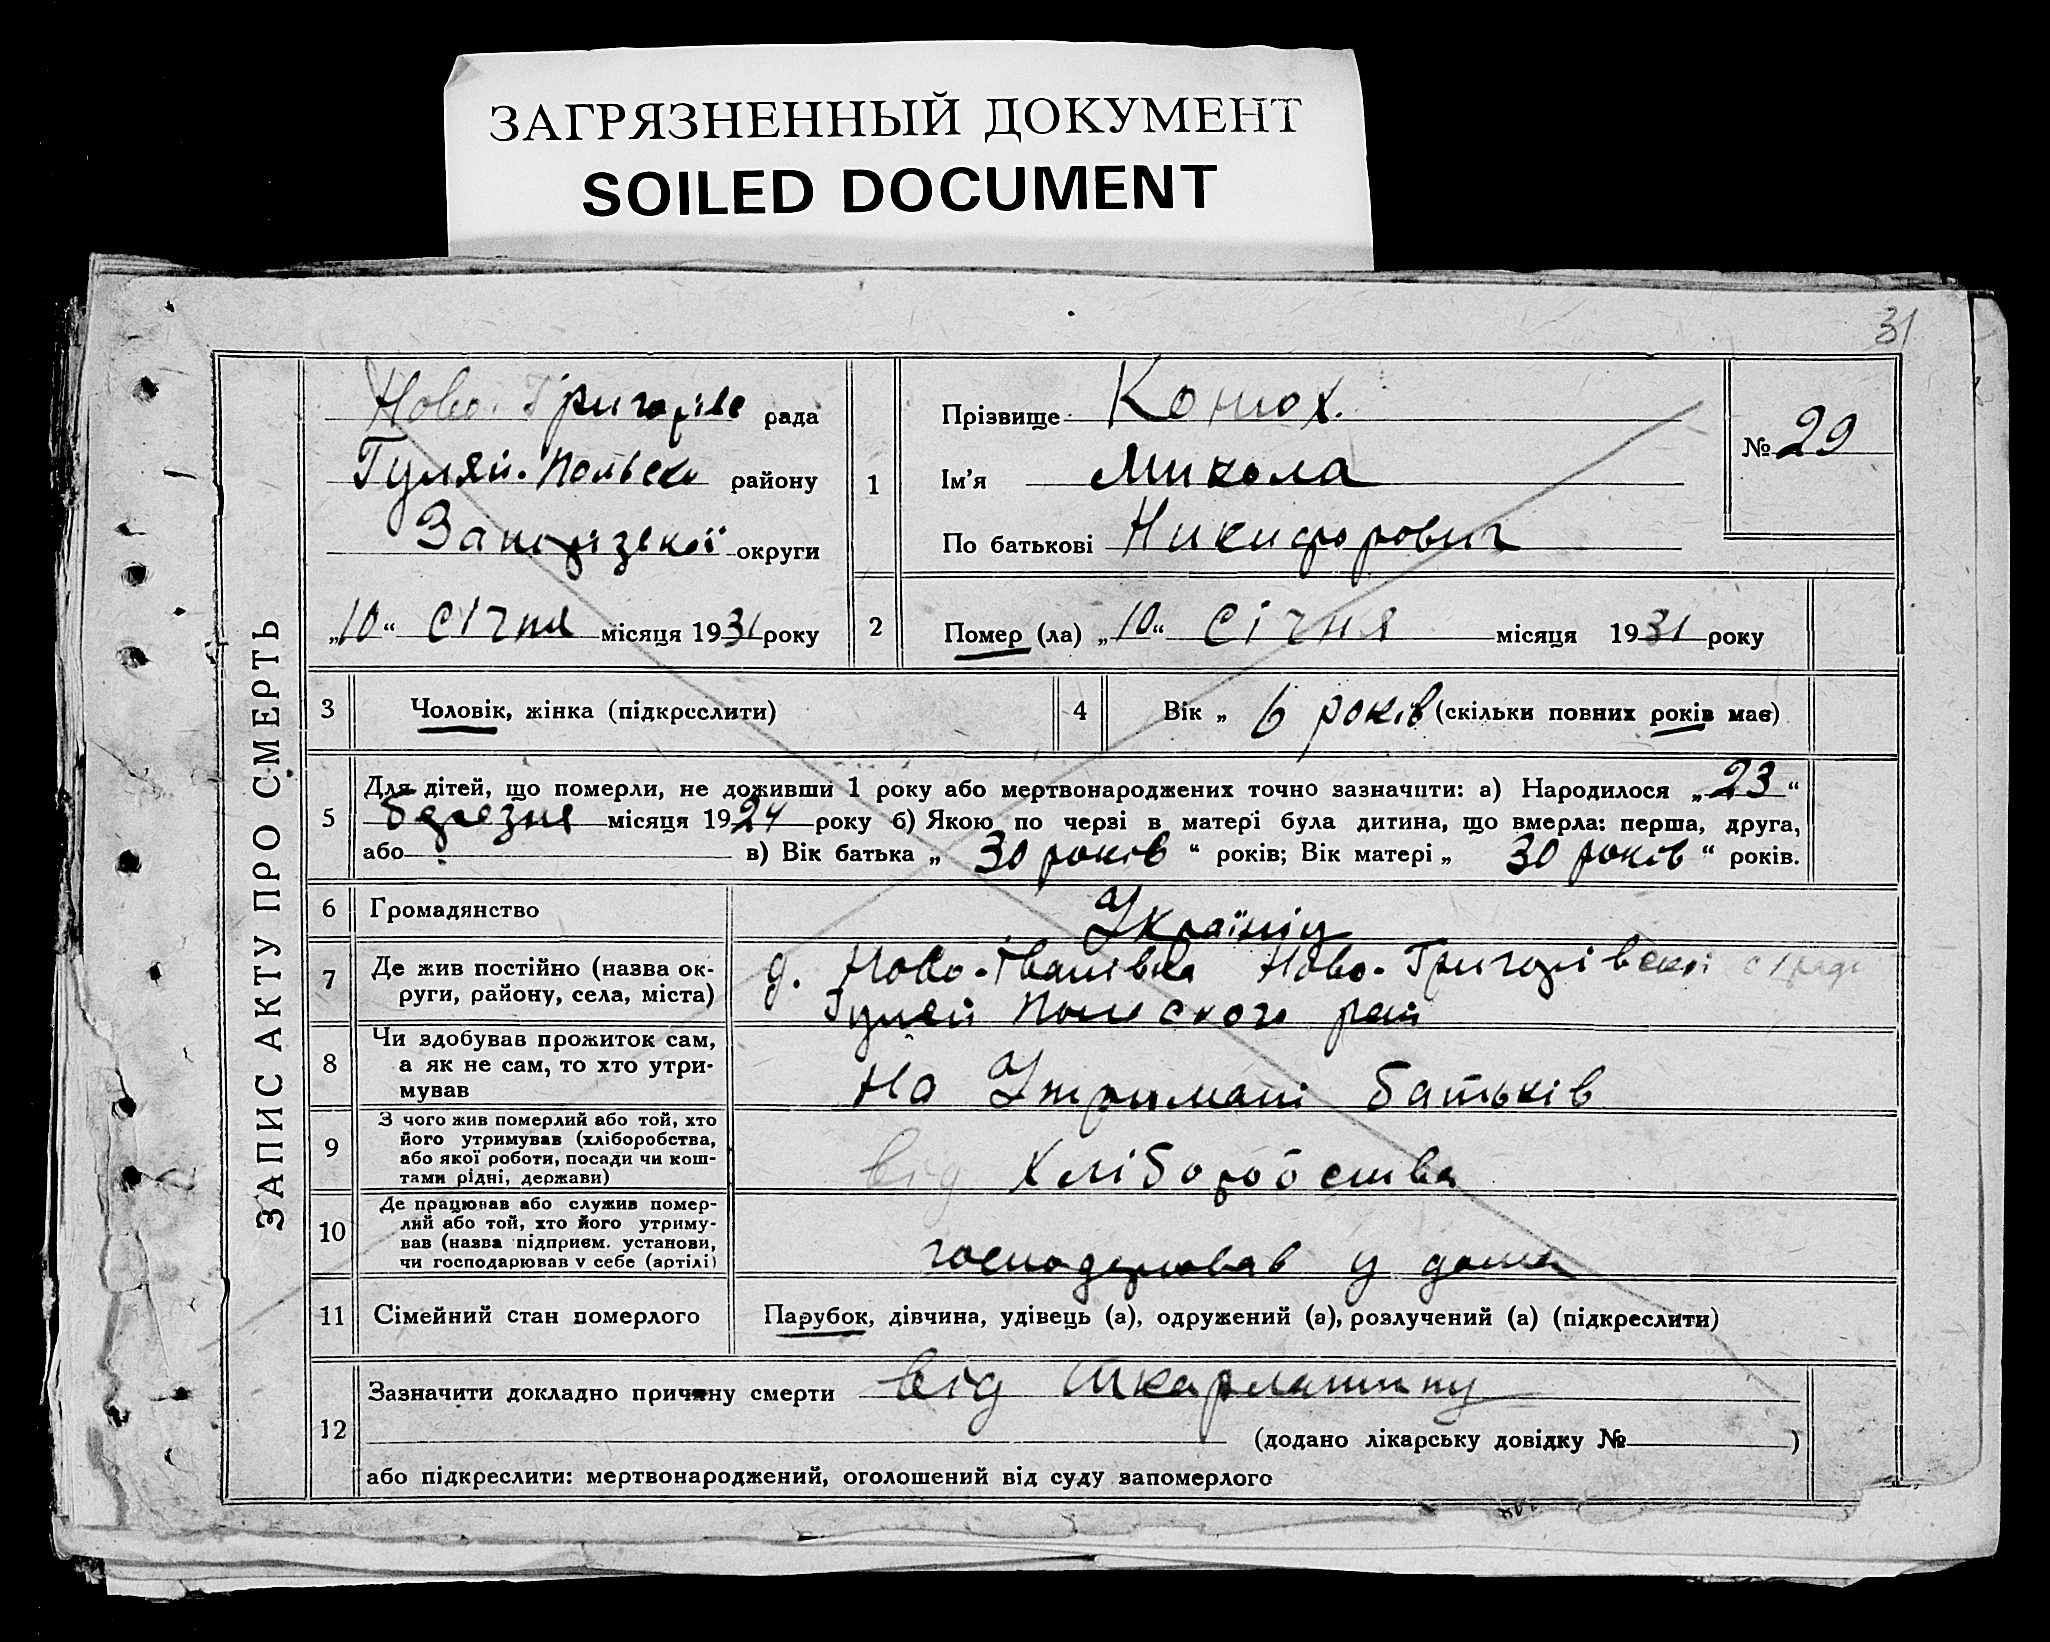 ЗАГРЯЗНЕННЫЙ ДОКУМЕНТ
SOILED DOCUMENT
31
ЗАПИС АКТУ ПРО СМЕРТЬ
Ново-Григорівс рада
Гуляй-Польськ району
Запорізської округи
„10“ січня місяця 1931 року
1
Прізвище Конюх.
Ім'я Микола
По батькові Никифорович
№ 29
2
Помер (ла) „10“ січня місяця 1931 року
3 Чоловік, жінка (підкреслити)
4 Вік „ 6 років (скільки повних років має)
5
Для дітей, що померли, не доживши 1 року або мертвонароджених точно зазначити: а) Народилося „23“
березня місяця 1924 року б) Якою по черзі в матері була дитина, що вмерла: перша, друга,
або в) Вік батька „ 30 років “ років; Вік матері „ 30 років “ років.
6 Громадянство Україніц
7
Де жив постійно (назва ок-
руги, району, села, міста)
д. Ново-Іванівка Ново-Григорівської с/ради
Гуляй Польского рай
8
Чи здобував прожиток сам,
а як не сам, то хто утри-
мував
На Утримані батьків
9
З чого жив померлий або той, хто
його утримував (хліборобства,
або якої роботи, посади чи кош-
тами рідні, держави)
від Хліборобства
10
Де працював або служив помер-
лий або той, хто його утриму-
вав (назва підприєм. установи,
чи господарював у себе (артілі)
господарював у дома
11 Сімейний стан померлого Парубок, дівчина, удівець (а), одружений (а), розлучений (а) (підкреслити)
12
Зазначити докладно причину смерти від шкарлатину
(додано лікарську довідку № )
або підкреслити: мертвонароджений, оголошений від суду запомерлого